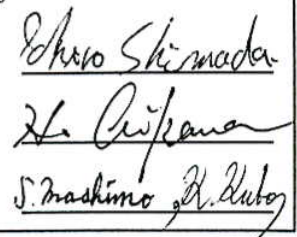 Ichiro Shimada
H.
S. Mashimo, K. Kubo